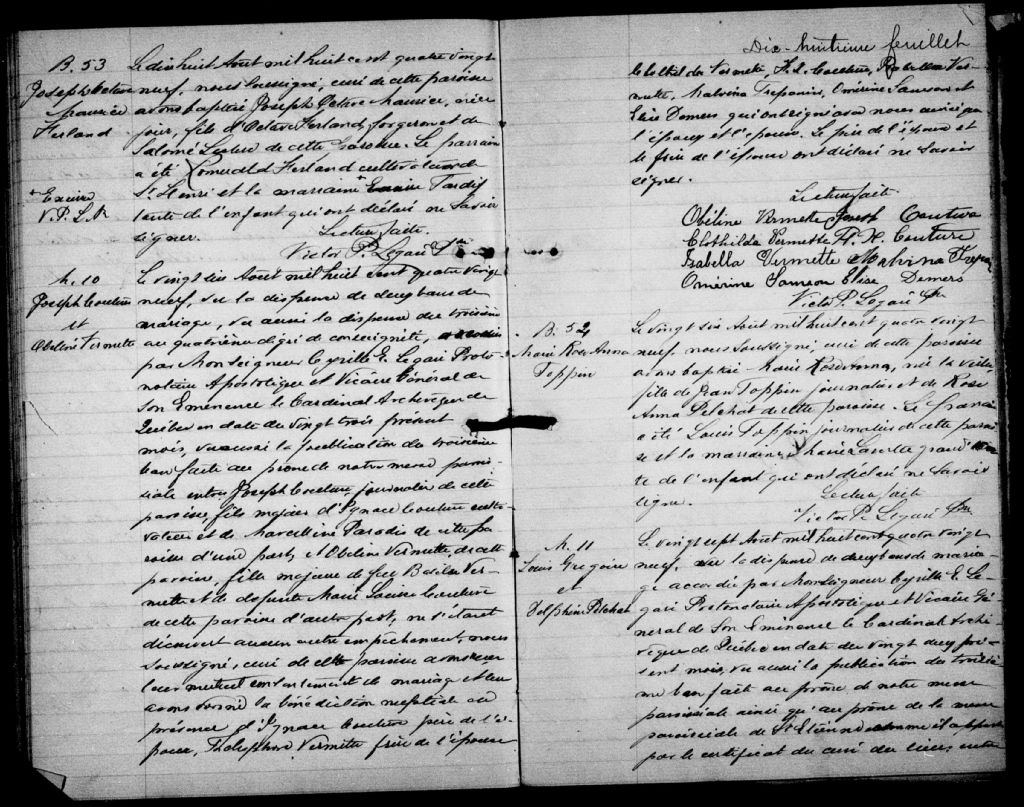 B. 53
Joseph Octave
Maurice
Ferland
Le dix huit Aout mil huit cent quatre vingt
neuf, nous soussigné, curé de cette paroisse
avons baptisé Joseph Octave Maurice, né ce
jour, fils d'Octave Ferland, forgeron et de
Salomé Leclerc de cette paroisse. Le parrain
a été Romuald Ferland cultivateur de
St Henri et la marraine Exeire Tardif
tante de l'enfant qui ont déclaré ne savoir
signer. Lecture faite.
V. P. L. Ptr
Victor P. Legaré Ptre
M. 10
Joseph Couture
et
Obeline Vermette
Le vingt six Aout mil huit cent quatre vingt
neuf, vu la dispense de deux bans de
mariage, vu aussi la dispense du troisième
au quatrième degré de consanguinité,
par Monseigneur Cyrille E. Legaré Proto-
notaire Apostolique et Vicaire Général de
Son Eminence le Cardinal Archevêque de
Québec en date du vingt trois présent
mois, vu aussi la publication du troisième
ban faite au prone de notre messe parois-
siale entre Joseph Couture, journalier de cette
paroisse, fils majeur d'Ignace Couture culti-
vateur et de Marcelline Paradis de cette pa-
roisse d'une part, et Obeline Vermette, de cette
paroisse, fille majeure de feu Basile Ver-
mette et de défunte Marie Louise Couture
de cette paroisse d'autre part, ne s'étant
découvert aucun autre empêchement, nous
soussigné, curé de cette paroisse avons reçu
leur mutuel consentement de mariage et leur
avons donné la bénédiction nuptiale en
présence d'Ignace Couture père de l'é-
poux, Thelesphore Vermette frère de l'épouse
Dix-huitième feuillet
Clothilde Vermette, F. X. Couture, Isabella Ver-
mette, Malvina Trepanier, Omérine Samson et
Elise Demers qui ont signé avec nous ainsi que
l'époux et l'épouse. Le père de l'époux et
le frère de l'épouse ont déclaré ne savoir
signer.
Lecture faite.
Obéline Vermette Joseph Couture
Clothilde Vermette F. X. Couture
Isabella Vermette Malvina Trepan
Omérine Samson Elise Demers
Victor P. Legaré Ptr
B. 54
Marie Rose Anna
Toppin
Le vingt six Aout mil huit cent quatre vingt
neuf, nous soussigné, curé de cette paroisse
avons baptisé Marie Rose Anna, née la veille
fille de Jean Toppin journalier et de Rose
Anna Pelchat de cette paroisse. Le parrain
a été Louis Toppin journalier de cette parois
se et la marraine Marie grand
te de l'enfant qui ont déclaré ne savoir
signer. Lecture faite
Victor P. Legaré Ptr
M. 11
Louis Gregoire
et
Delphine Pelchat
Le vingt sept Aout mil huit cent quatre vingt
neuf, vu la dispense de deux bans de maria-
ge accordée par Monseigneur Cyrille E. Le-
garé Protonotaire Apostolique et Vicaire Gé-
néral de Son Eminence le Cardinal Arche-
vêque de Québec en date du vingt deux pré-
sent mois, vu aussi la publication du troisiè-
me ban fait au prône de notre messe
paroissiale ainsi qu'au prône de la messe
paroissiale de St Etienne comme il appert
par le certificat du curé du lieu, entre